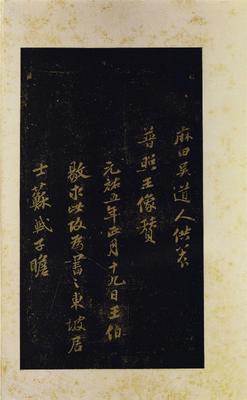 麻田吴道人供养
普照王像赞
元祐五年正月十九日王伯
敭求此故为書之東坡居
士蘇軾子瞻